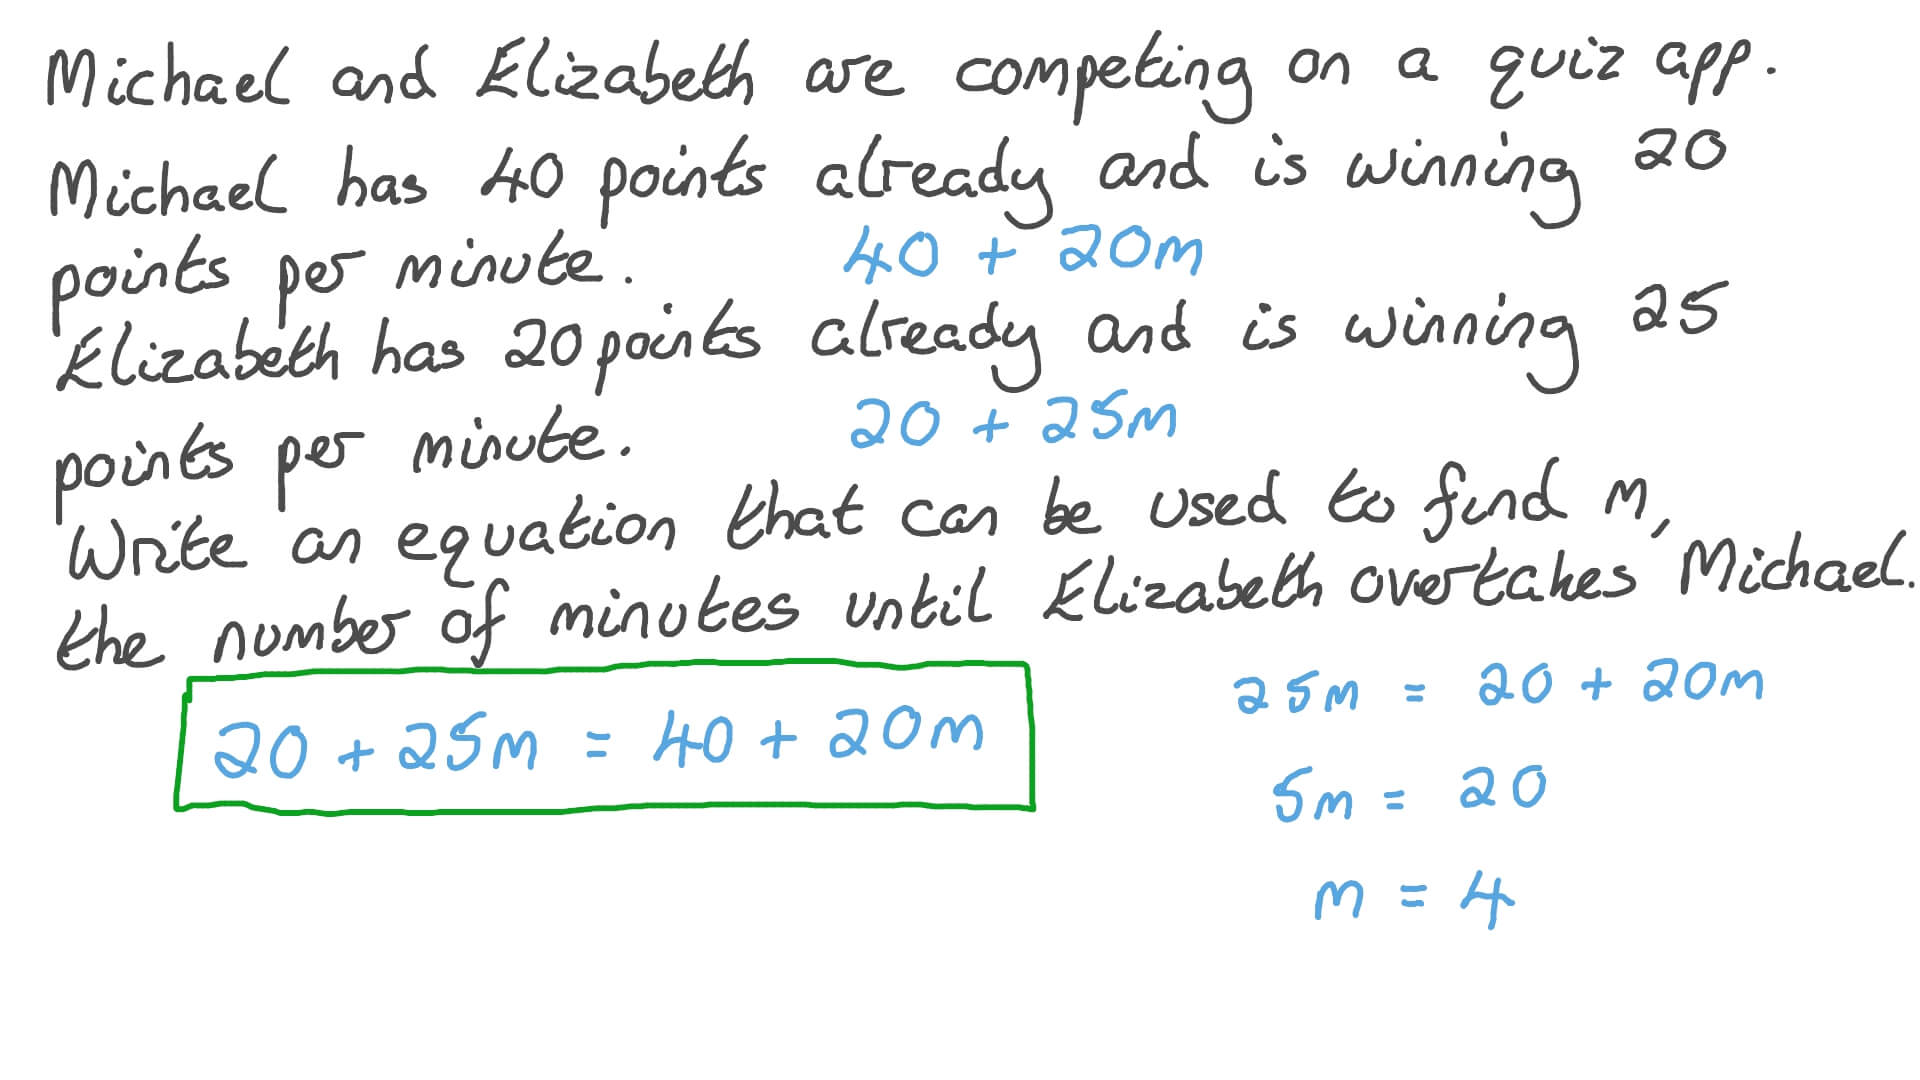 Michael and Elizabeth are competing on a quiz app.
Michael has 40 points already and is winning 20
points per minute.
40 + 20m
Elizabeth has 20 points already and is winning 25
points per minute.
20 + 25m
Write an equation that can be used to find m,
the number of minutes until Elizabeth overtakes Michael.
20 + 25m = 40 + 20m
25m = 20 + 20m
5m = 20
m = 4